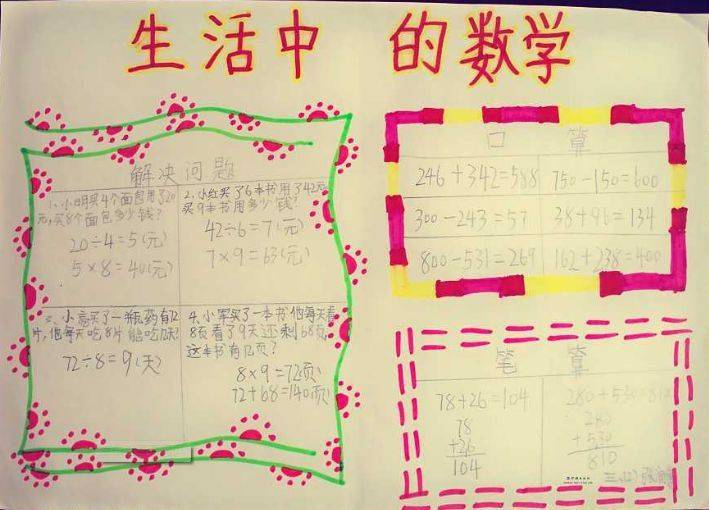 生活中的数学
解决问题
1、小明买4个面包用了20
元,买8个面包多少钱?
20÷4=5(元)
5×8=40(元)
2、小红买了6本书用了42元
买9本书用多少钱?
42÷6=7(元)
7×9=63(元)
小亮买了一瓶药有72
片,他每天吃8片能吃几天?
72÷8=9(天)
4、小军买了一本书他每天看
8页看了9天还剩68页,
这本书有几页?
8×9=72(页)
72+68=140(页)
口算
246+342=588
750-150=600
300-243=57
38+96=134
800-531=269
162+238=400
笔算
78+26=104
78
+26
104
280+530=810
280
+530
810